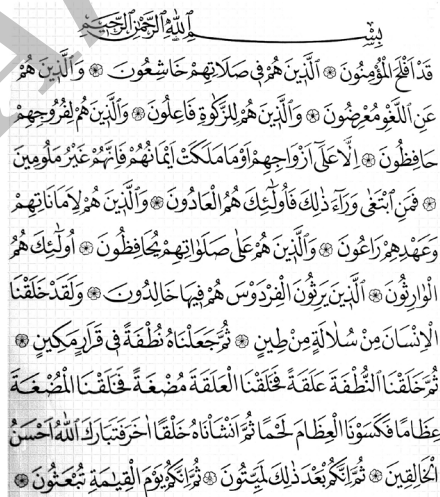 بِسْمِ اللّٰهِ الرَّحْمٰنِ الرَّحِيمِ
قَدْ اَفْلَحَ الْمُؤْمِنُونَ ۞ اَلَّذِينَ هُمْ فِى صَلَاتِهِمْ خَاشِعُونَ ۞ وَالَّذِينَ هُمْ
عَنِ اللَّغْوِ مُعْرِضُونَ ۞ وَالَّذِينَ هُمْ لِلزَّكٰوةِ فَاعِلُونَ ۞ وَالَّذِينَ هُمْ لِفُرُوجِهِمْ
حَافِظُونَ ۞ اِلَّا عَلٰٓى اَزْوَاجِهِمْ اَوْ مَا مَلَكَتْ اَيْمَانُهُمْ فَاِنَّهُمْ غَيْرُ مَلُومِينَ
۞ فَمَنِ ابْتَغٰى وَرَٓاءَ ذٰلِكَ فَاُولٰٓئِكَ هُمُ الْعَادُونَ ۞ وَالَّذِينَ هُمْ لِاَمَانَاتِهِمْ
وَعَهْدِهِمْ رَاعُونَ ۞ وَالَّذِينَ هُمْ عَلٰى صَلَوَاتِهِمْ يُحَافِظُونَ ۞ اُولٰٓئِكَ هُمُ
الْوَارِثُونَ ۞ اَلَّذِينَ يَرِثُونَ الْفِرْدَوْسَ هُمْ فِيهَا خَالِدُونَ ۞ وَلَقَدْ خَلَقْنَا
الْاِنْسَانَ مِنْ سُلَالَةٍ مِنْ طِينٍ ۞ ثُمَّ جَعَلْنَاهُ نُطْفَةً فِى قَرَارٍ مَكِينٍ ۞
ثُمَّ خَلَقْنَا النُّطْفَةَ عَلَقَةً فَخَلَقْنَا الْعَلَقَةَ مُضْغَةً فَخَلَقْنَا الْمُضْغَةَ
عِظَامًا فَكَسَوْنَا الْعِظَامَ لَحْمًا ثُمَّ اَنْشَاْنَاهُ خَلْقًا اٰخَرَ فَتَبَارَكَ اللّٰهُ اَحْسَنُ
الْخَالِقِينَ ۞ ثُمَّ اِنَّكُمْ بَعْدَ ذٰلِكَ لَمَيِّتُونَ ۞ ثُمَّ اِنَّكُمْ يَوْمَ الْقِيٰمَةِ تُبْعَثُونَ ۞